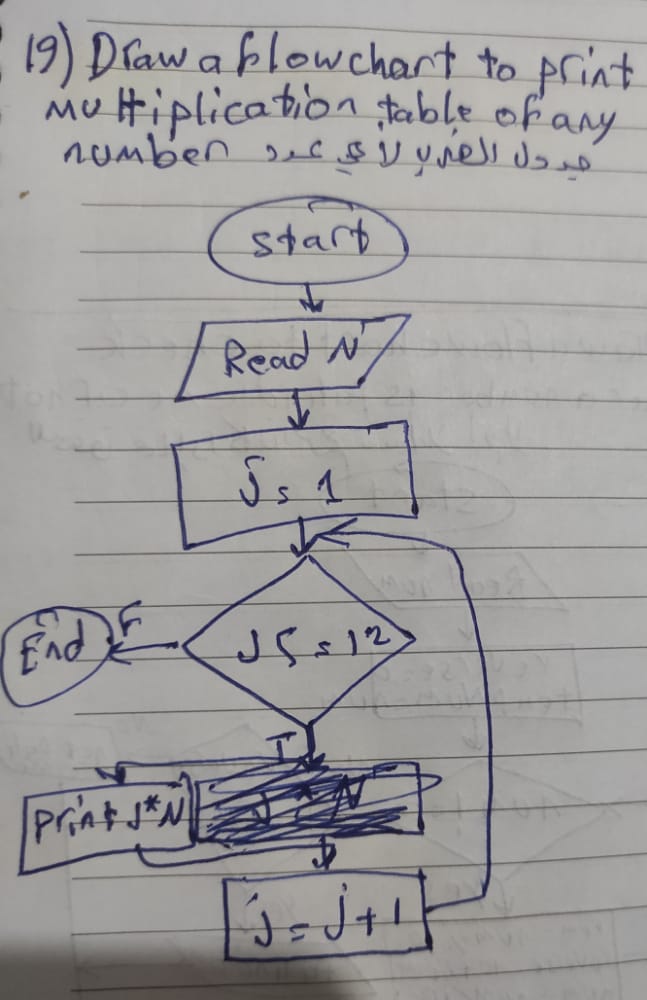 19) Draw a flowchart to print
multiplication table of any
number جدول الضرب لأي عدد
start
Read N
J = 1
J <= 12
F
End
T
Print J*N
J * N
j = j + 1